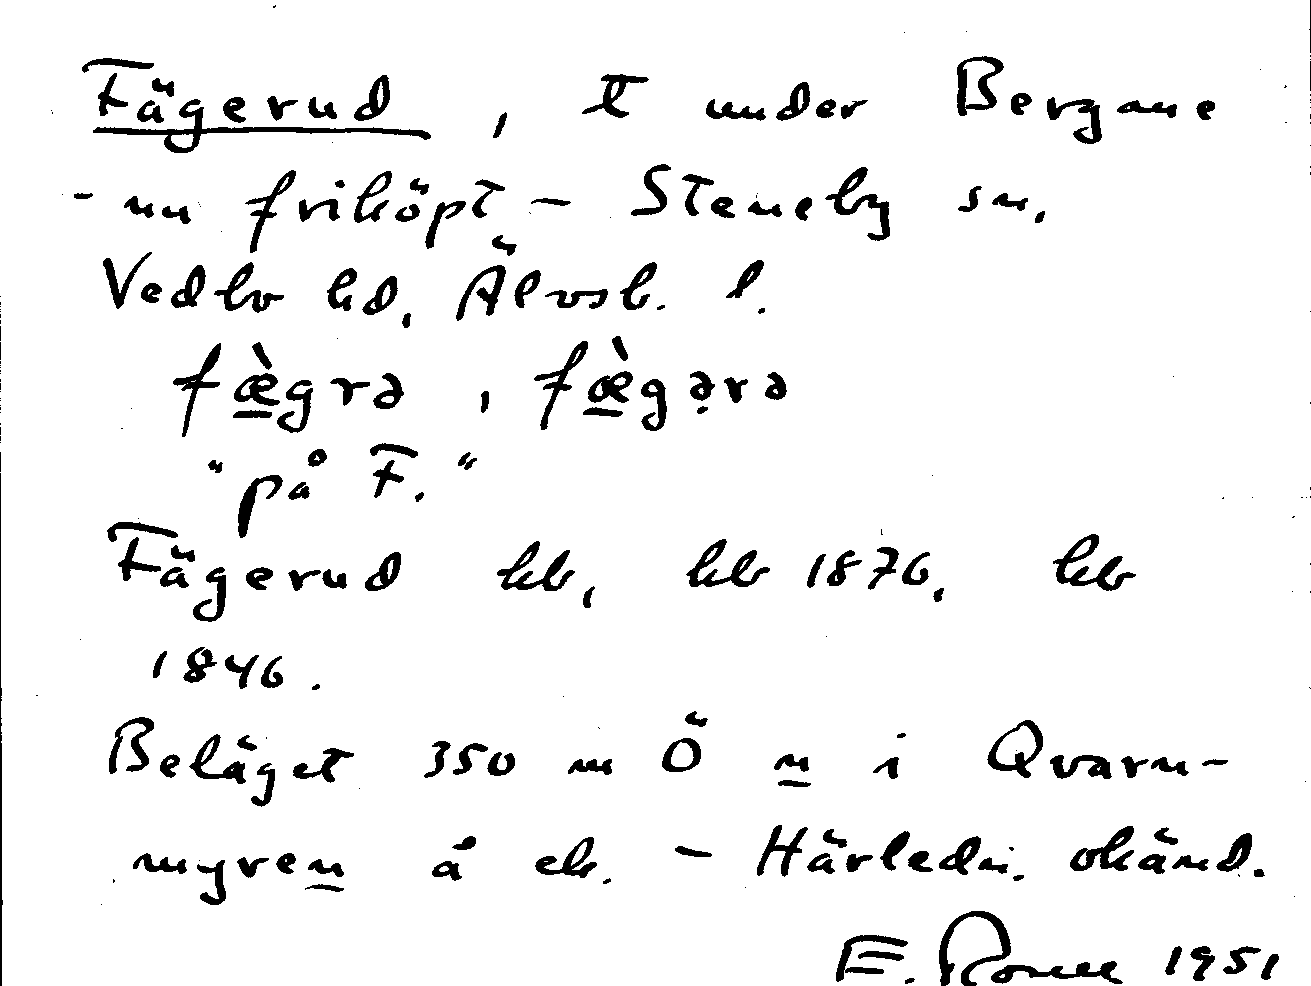 Fägerud, t under Bergane
- nu friköpt - Steneby sn,
Vedbo hd, Älvsb. l.
fæ̀grə, fæ̀gə̣rə
"på F."
Fägerud kb, kb 1876, kb
1846.
Beläget 350 m Ö n i Qvarn-
myren å ek. - Härledn. okänd.
E. 1951